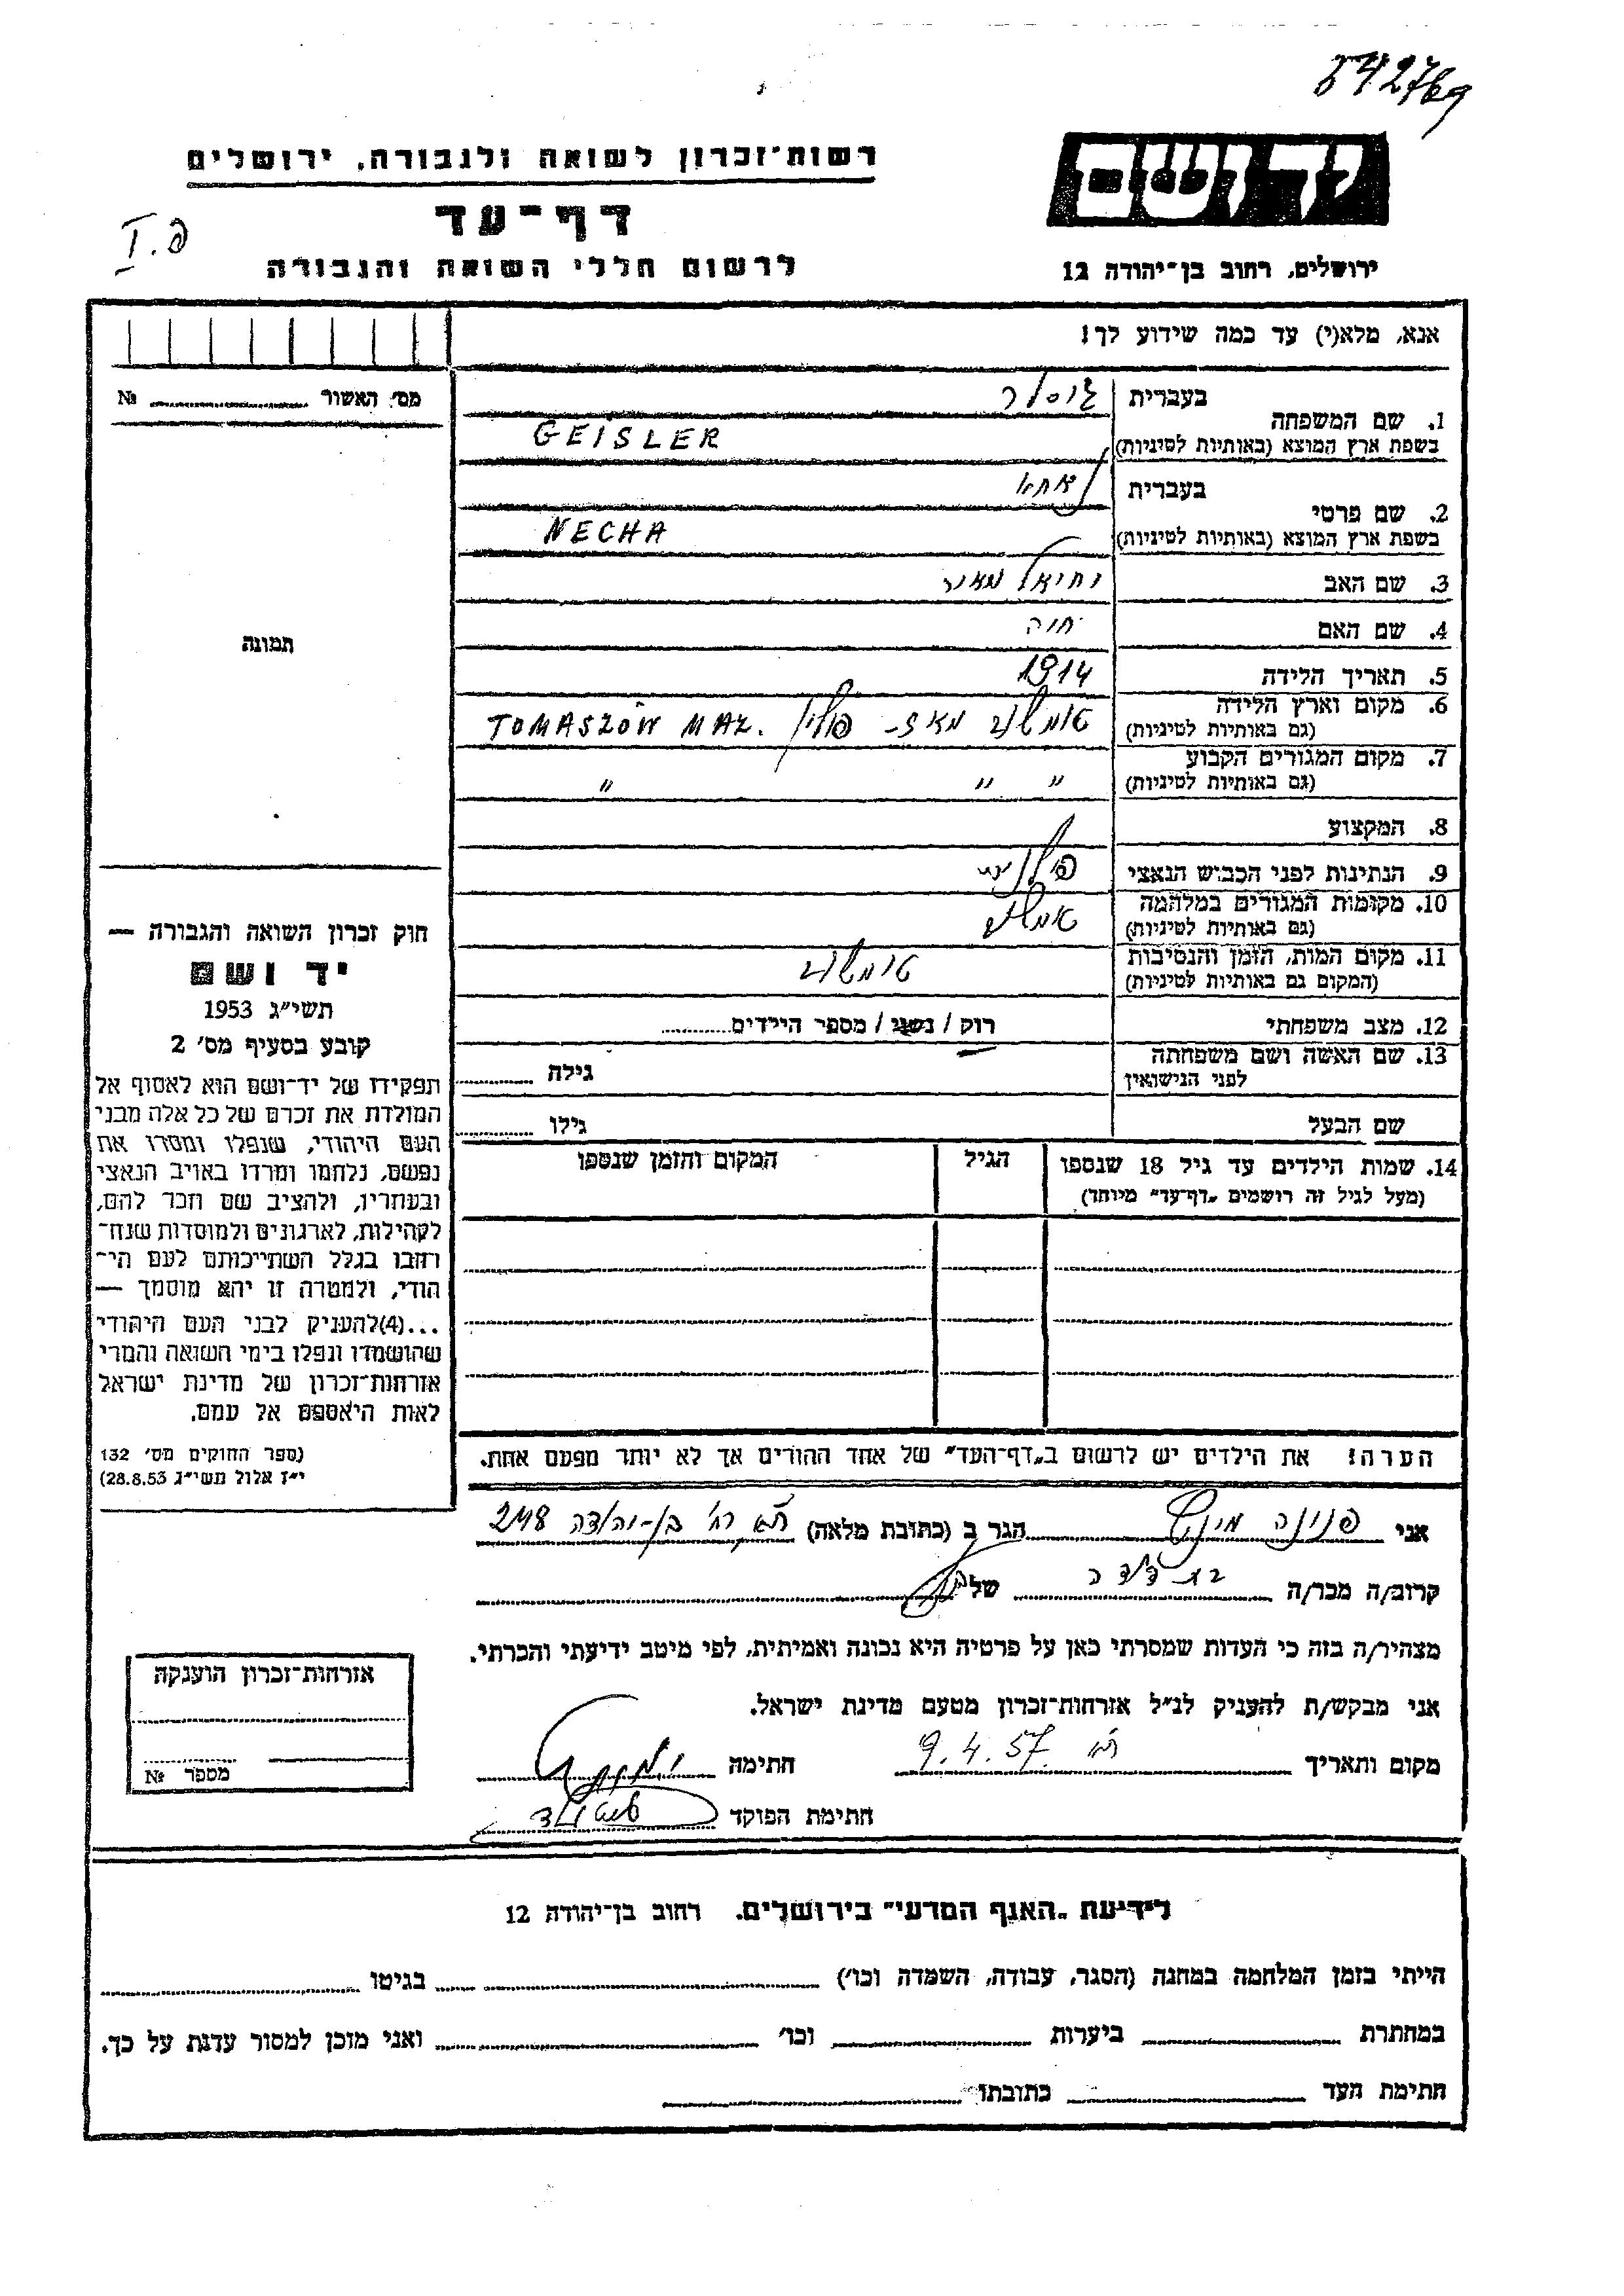 רשות־זכרון לשואה ולגבורה, ירושלים
דף־עד
לרשום חללי השואה והגבורה
יד ושם
ירושלים, רחוב בן־יהודה 12
אנא, מלא(י) עד כמה שידוע לך!
מס׳ האשור № 
1. שם המשפחה
בעברית גיסלר
בשפת ארץ המוצא (באותיות לטיניות) GEISLER
2. שם פרטי
בעברית
בשפת ארץ המוצא (באותיות לטיניות) NECHA
3. שם האב יחיאל מאיר
4. שם האם חיה
5. תאריך הלידה 1914
6. מקום וארץ הלידה טומשוב מאז- פולין TOMASZÓW MAZ.
(גם באותיות לטיניות)
7. מקום המגורים הקבוע
(גם באותיות לטיניות) " " "
8. המקצוע
9. הנתינות לפני הכבוש הנאצי
10. מקומות המגורים במלחמה טומשוב
(גם באותיות לטיניות)
11. מקום המות, הזמן והנסיבות טומשוב
(המקום גם באותיות לטיניות)
12. מצב משפחתי רוק / נשוי / מספר הילדים
13. שם האשה ושם משפחתה
לפני הנישואין גילה
שם הבעל גילו
14. שמות הילדים עד גיל 18 שנספו הגיל המקום והזמן שנספו
(מעל לגיל זה רושמים „דף־עד" מיוחד)
הערה! את הילדים יש לרשום ב„דף־העד" של אחד ההורים אך לא יותר מפעם אחת.
תמונה
חוק זכרון השואה והגבורה —
יד ושם
תשי״ג 1953
קובע בסעיף מס׳ 2
תפקידו של יד־ושם הוא לאסוף אל
המולדת את זכרם של כל אלה מבני
העם היהודי, שנפלו ומסרו את
נפשם, נלחמו ומרדו באויב הנאצי
ובעוזריו, ולהציב שם וזכר להם,
לקהילות, לארגונים ולמוסדות שנח־
רבו בגלל השתייכותם לעם הי־
הודי, ולמטרה זו יהא מוסמך —
...(4) להעניק לבני העם היהודי
שהושמדו ונפלו בימי השואה והמרי
אזרחות־זכרון של מדינת ישראל
לאות היאספם אל עמם.
(ספר החוקים מס׳ 132
י״ז אלול תשי״ג 28.8.53)
אני פנינה הגר ב (כתובת מלאה) ת״א רח׳ בן-יהודה 248
קרוב/ה מכר/ה בת דודה של
מצהיר/ה בזה כי העדות שמסרתי כאן על פרטיה היא נכונה ואמיתית, לפי מיטב ידיעתי והכרתי.
אני מבקש/ת להעניק לנ״ל אזרחות־זכרון מטעם מדינת ישראל.
מקום ותאריך ת״א 9.4.57 חתימה
חתימת הפוקד
אזרחות־זכרון הוענקה
מספר №
לידיעת „האגף המדעי" בירושלים. רחוב בן־יהודה 12
הייתי בזמן המלחמה במחנה (הסגר, עבודה, השמדה וכו׳) בגיטו
במחתרת ביערות וכו׳ ואני מוכן למסור עדות על כך.
חתימת העד כתובתו